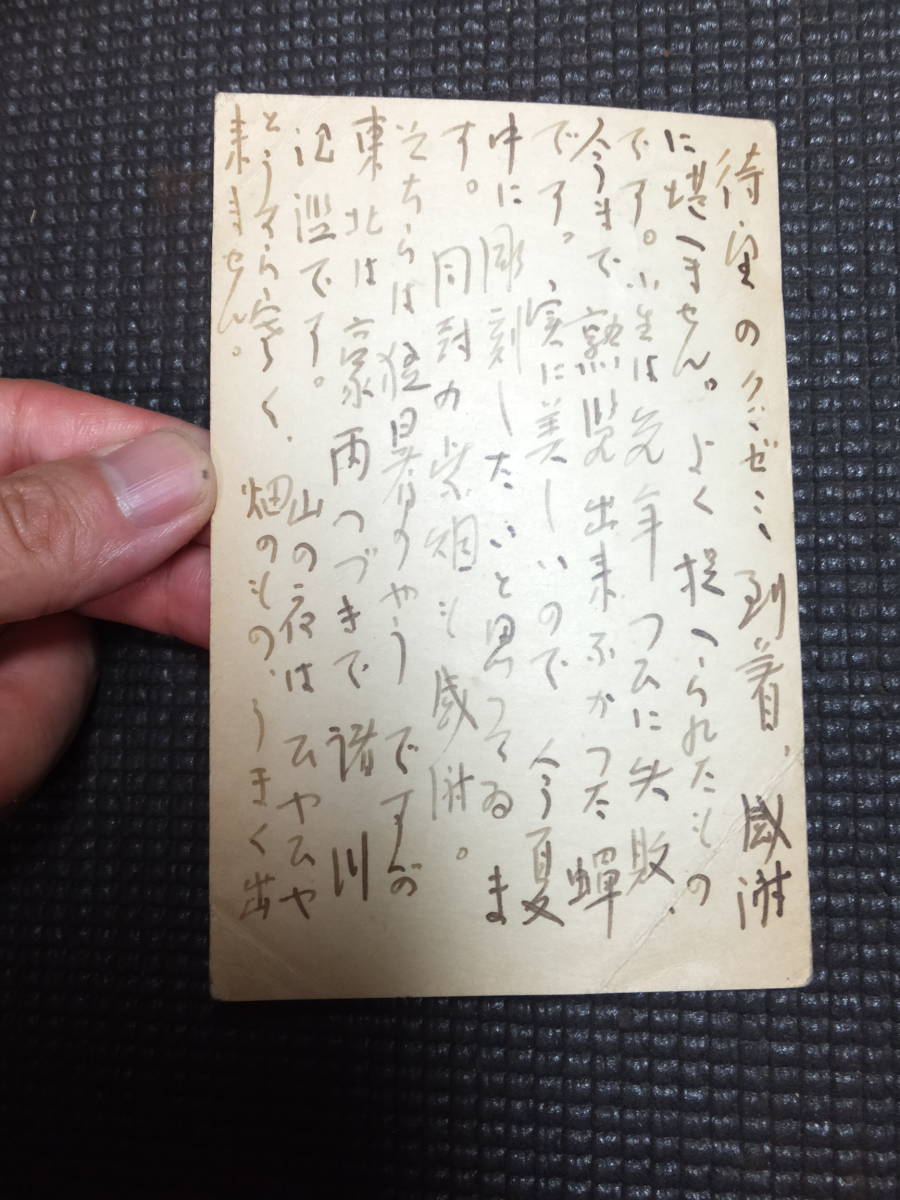 待望のクマゼミ到着、感謝
に堪へません。よく捉へられたもの
です。小生は先年つひに失敗、
今うまで熟覧出来なかつた蝉
です。実に美しいので今夏
中に彫刻したいと思つてゐま
す。同封の紫烟も感謝。
そちらは猛暑のやうですが
東北は豪雨つづきで諸川
氾濫です。山の夜はひやひや
とうすら寒く、畑のもの、うまく出
来ません。